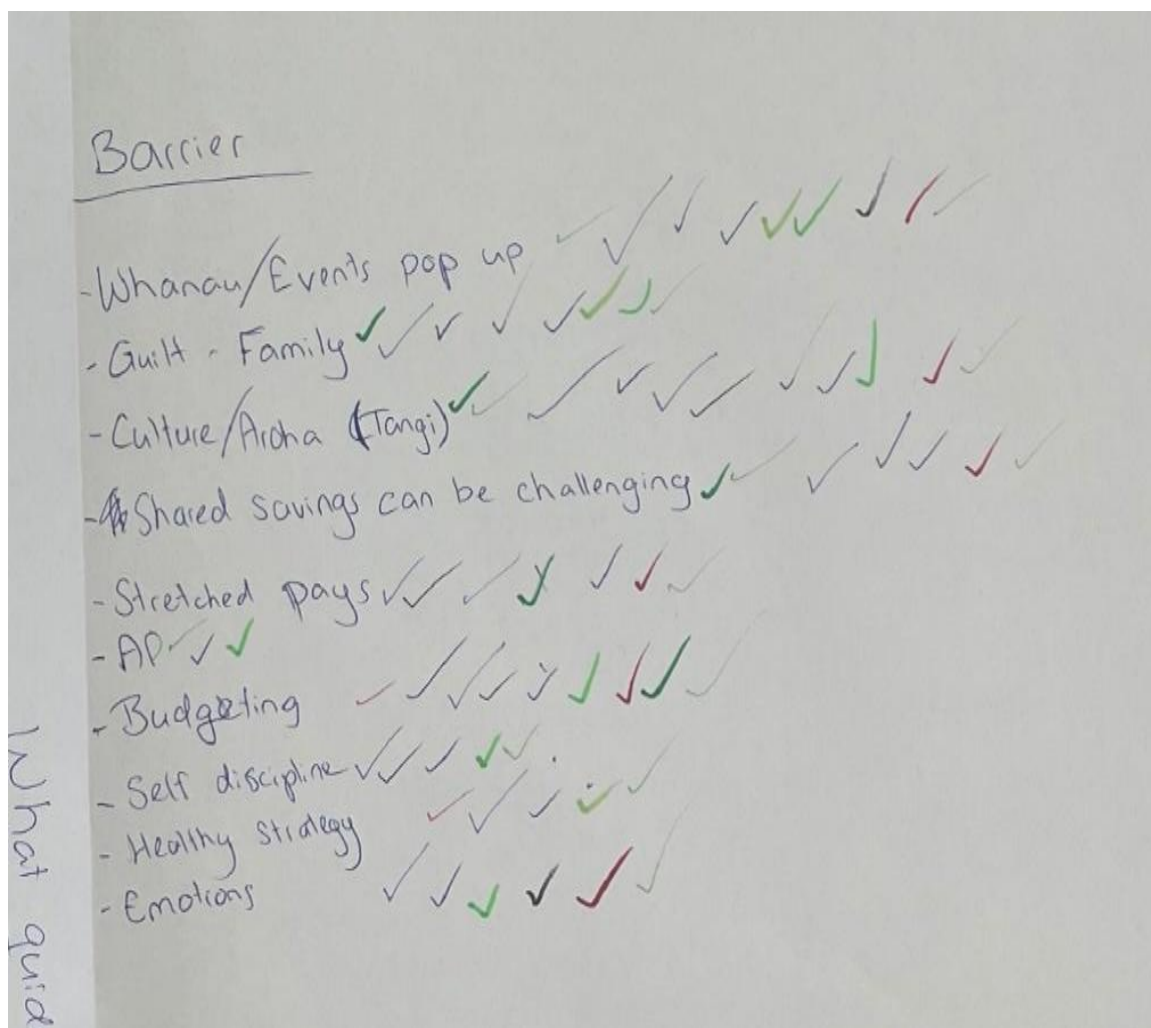 Barrier
- Whanau/Events pop up
- Guilt - Family
- Culture/Aroha (Tangi)
- Shared savings can be challenging
- Stretched pays
- AP
- Budgeting
- Self discipline
- Healthy strategy
- Emotions
What quid